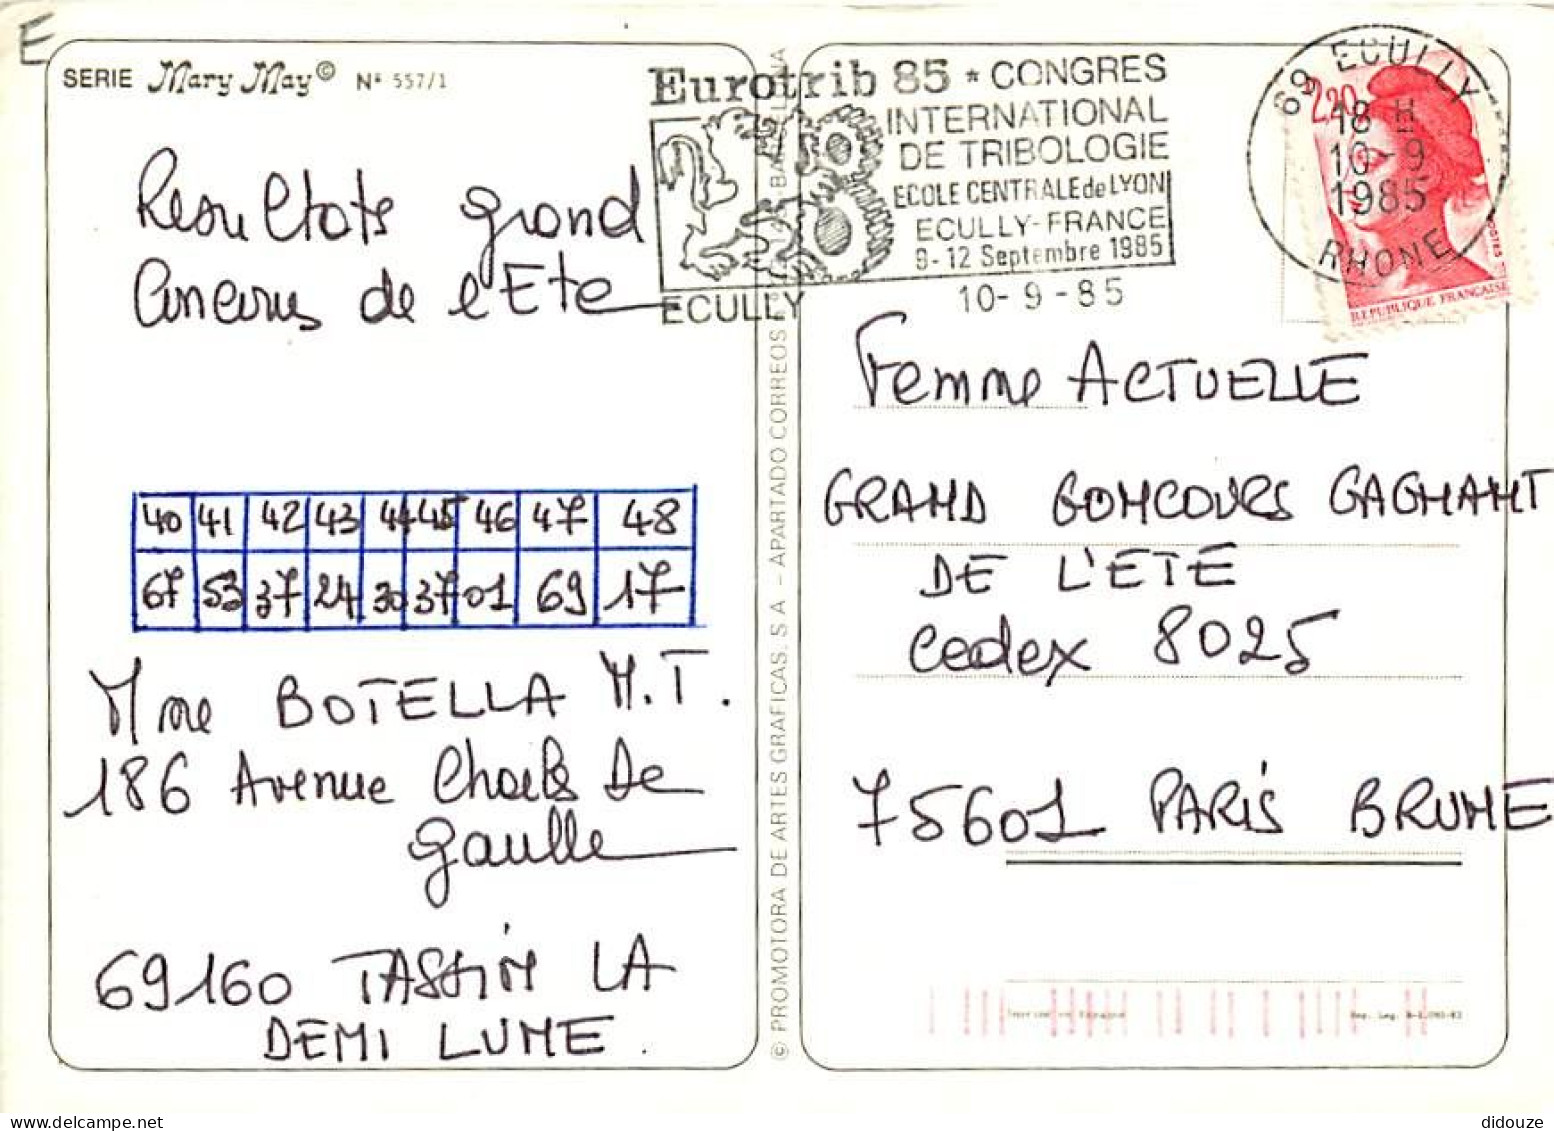 E
SERIE Mary May © Nº 557/1
Resultats grand
Concours de l'Ete
40 41 42 43 44 45 46 47 48
67 53 37 24 30 37 01 69 17
Mme BOTELLA M.T.
186 Avenue Charles De
Gaulle
69160 TASSIN LA
DEMI LUNE.
© PROMOTORA DE ARTES GRAFICAS. S A - APARTADO CORREOS
Eurotrib 85 * CONGRES
INTERNATIONAL
DE TRIBOLOGIE
ECOLE CENTRALE de LYON
ECULLY-FRANCE
9-12 Septembre 1985
ECULLY
10-9-85
69 ECULLY
18 H
10-9
1985
RHONE
2,20
POSTES
REPUBLIQUE FRANCAISE
Femme ACTUELLE
GRAND CONCOURS GAGNANT
DE L'ETE
Cedex 8025
75601 PARIS BRUNE
didouze